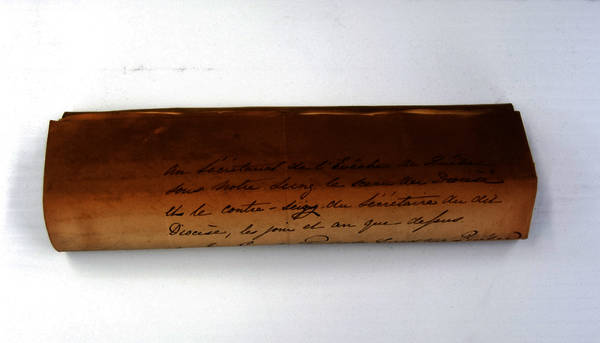 au Secrétariat de l'Evêché de Québec
sous notre Seing le sceau du Diocèse
et le contre-seing du Secrétaire du dit
Diocèse, les jour et an que dessus